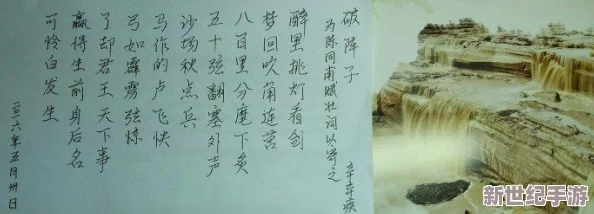 破阵子
为陈同甫赋壮词以寄之
辛弃疾
醉里挑灯看剑
梦回吹角连营
八百里分麾下炙
五十弦翻塞外声
沙场秋点兵
马作的卢飞快
弓如霹雳弦惊
了却君王天下事
赢得生前身后名
可怜白发生
二〇一六年五月卅日
新世纪手游